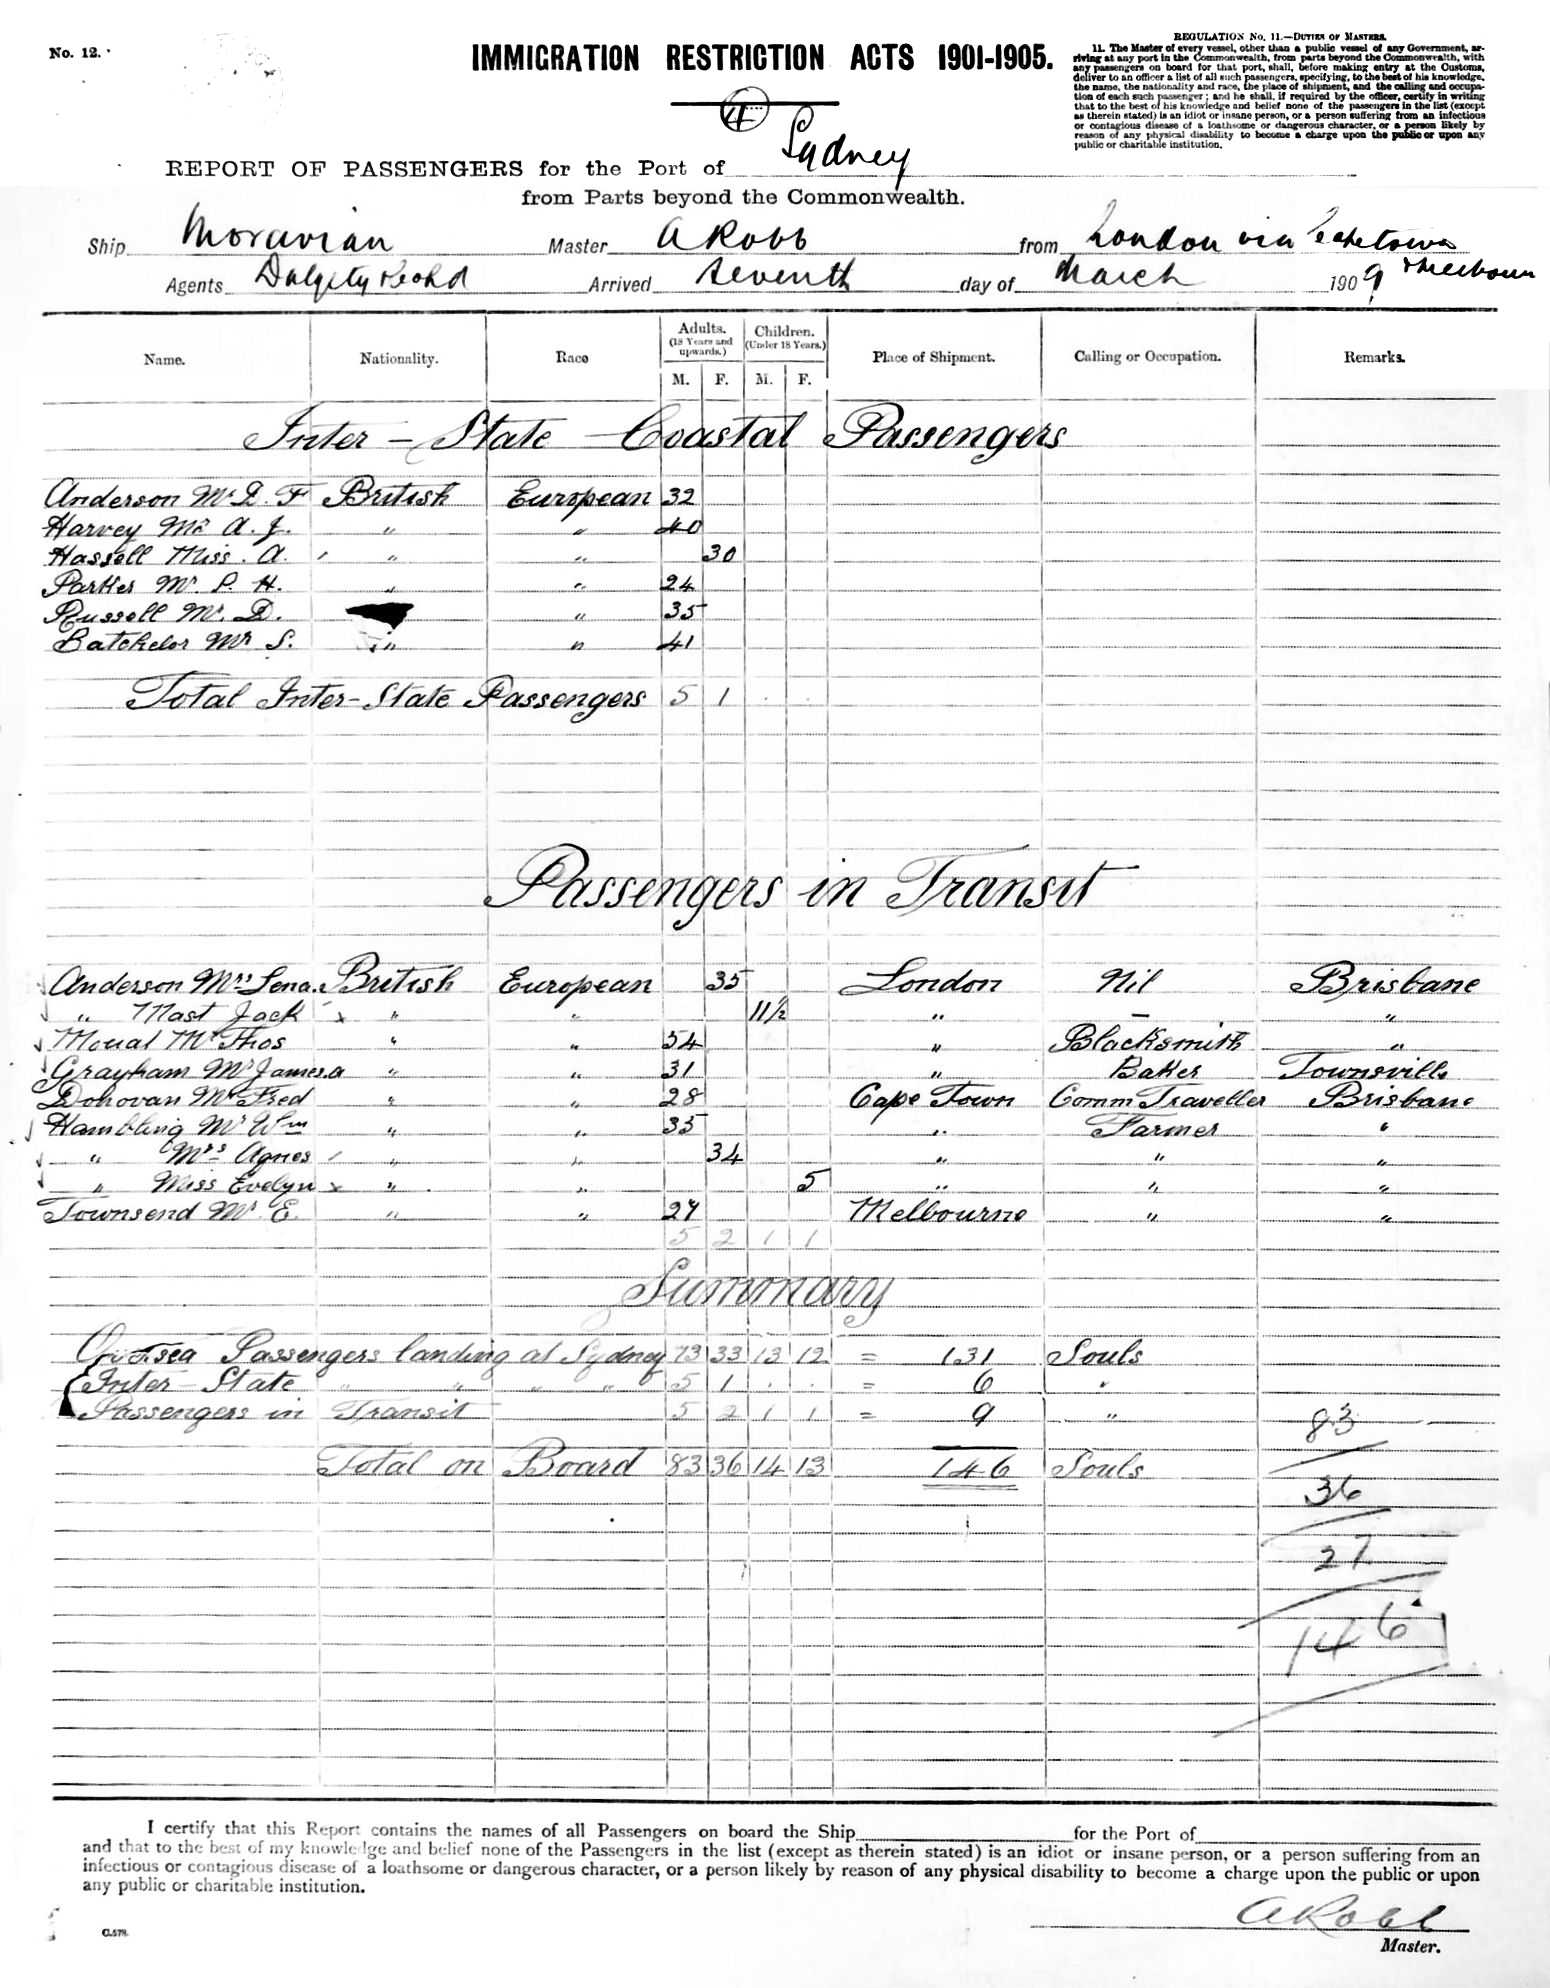 No. 12.
IMMIGRATION RESTRICTION ACTS 1901-1905.
REGULATION No. 11.—DUTIES OF MASTERS.
11. The Master of every vessel, other than a public vessel of any Government, ar-
riving at any port in the Commonwealth, from parts beyond the Commonwealth, with
any passengers on board for that port, shall, before making entry at the Customs,
deliver to an officer a list of all such passengers, specifying, to the best of his knowledge,
the name, the nationality and race, the place of shipment, and the calling and occupa-
tion of each such passenger; and he shall, if required by the officer, certify in writing
that to the best of his knowledge and belief none of the passengers in the list (except
as therein stated) is an idiot or insane person, or a person suffering from an infectious
or contagious disease of a loathsome or dangerous character, or a person likely by
reason of any physical disability to become a charge upon the public or upon any
public or charitable institution.
4
REPORT OF PASSENGERS for the Port of Sydney
from Parts beyond the Commonwealth.
Ship Moravian Master A Robb from London via Capetown
Agents Dalgety & Co Ltd Arrived Seventh day of March 1909 & Melbourne
Name. Nationality. Race Adults. (18 Years and upwards.) Children. (Under 18 Years.) Place of Shipment. Calling or Occupation. Remarks.
M. F. M. F.
Inter-State Coastal Passengers
Anderson Mr D. F British European 32
Harvey Mr A. J. " " 40
Hassell Miss. A. " " 30
Parker Mr. P. H. " " 24
Russell Mr. D. " 35
Batchelor Mr S. " " 41
Total Inter-State Passengers 5 1 . .
Passengers in Transit
Anderson Mrs Lena. British European 35 London Nil Brisbane
" Mast Jack x " " 11½ " — "
Mouat Mr Thos " " 54 " Blacksmith "
Grayham Mr James. a " " 31 " Baker Townsville
Donovan Mr Fred " " 28 Cape Town Comm Traveller Brisbane
Hambling Mr Wm " " 35 " Farmer "
" Mrs Agnes " " 34 " " "
" Miss Evelyn x " " 5 " " "
Townsend Mr. E. " " 27 Melbourne " "
5 2 1 1
Summary
Oversea Passengers landing at Sydney 73 33 13 12 = 131 Souls
Inter-State " " " " 5 1 . . = 6 "
Passengers in Transit 5 2 1 1 = 9 "
83
Total on Board 83 36 14 13 146 Souls
36
27
146
I certify that this Report contains the names of all Passengers on board the Ship for the Port of
and that to the best of my knowledge and belief none of the Passengers in the list (except as therein stated) is an idiot or insane person, or a person suffering from an
infectious or contagious disease of a loathsome or dangerous character, or a person likely by reason of any physical disability to become a charge upon the public or upon
any public or charitable institution.
A Robb
Master.
C.578.